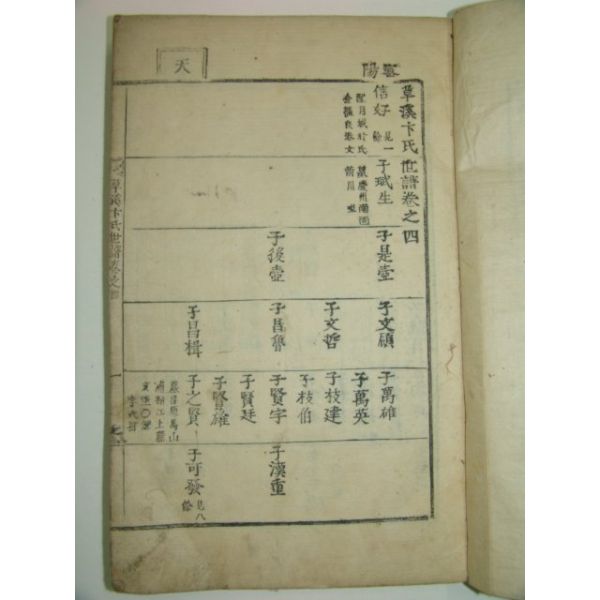 天
陽
草溪卞氏世譜卷之四
信好
見一
子珷生
子是壹
子後壹
子文碩
子文哲
子昌魯
子昌楫
子萬雄
子萬英
子枝建
子枝伯
子賢宇
子賢廷
子賢雄
子之賢
子漢重
子可發
見八
草溪卞氏世譜卷之四
一